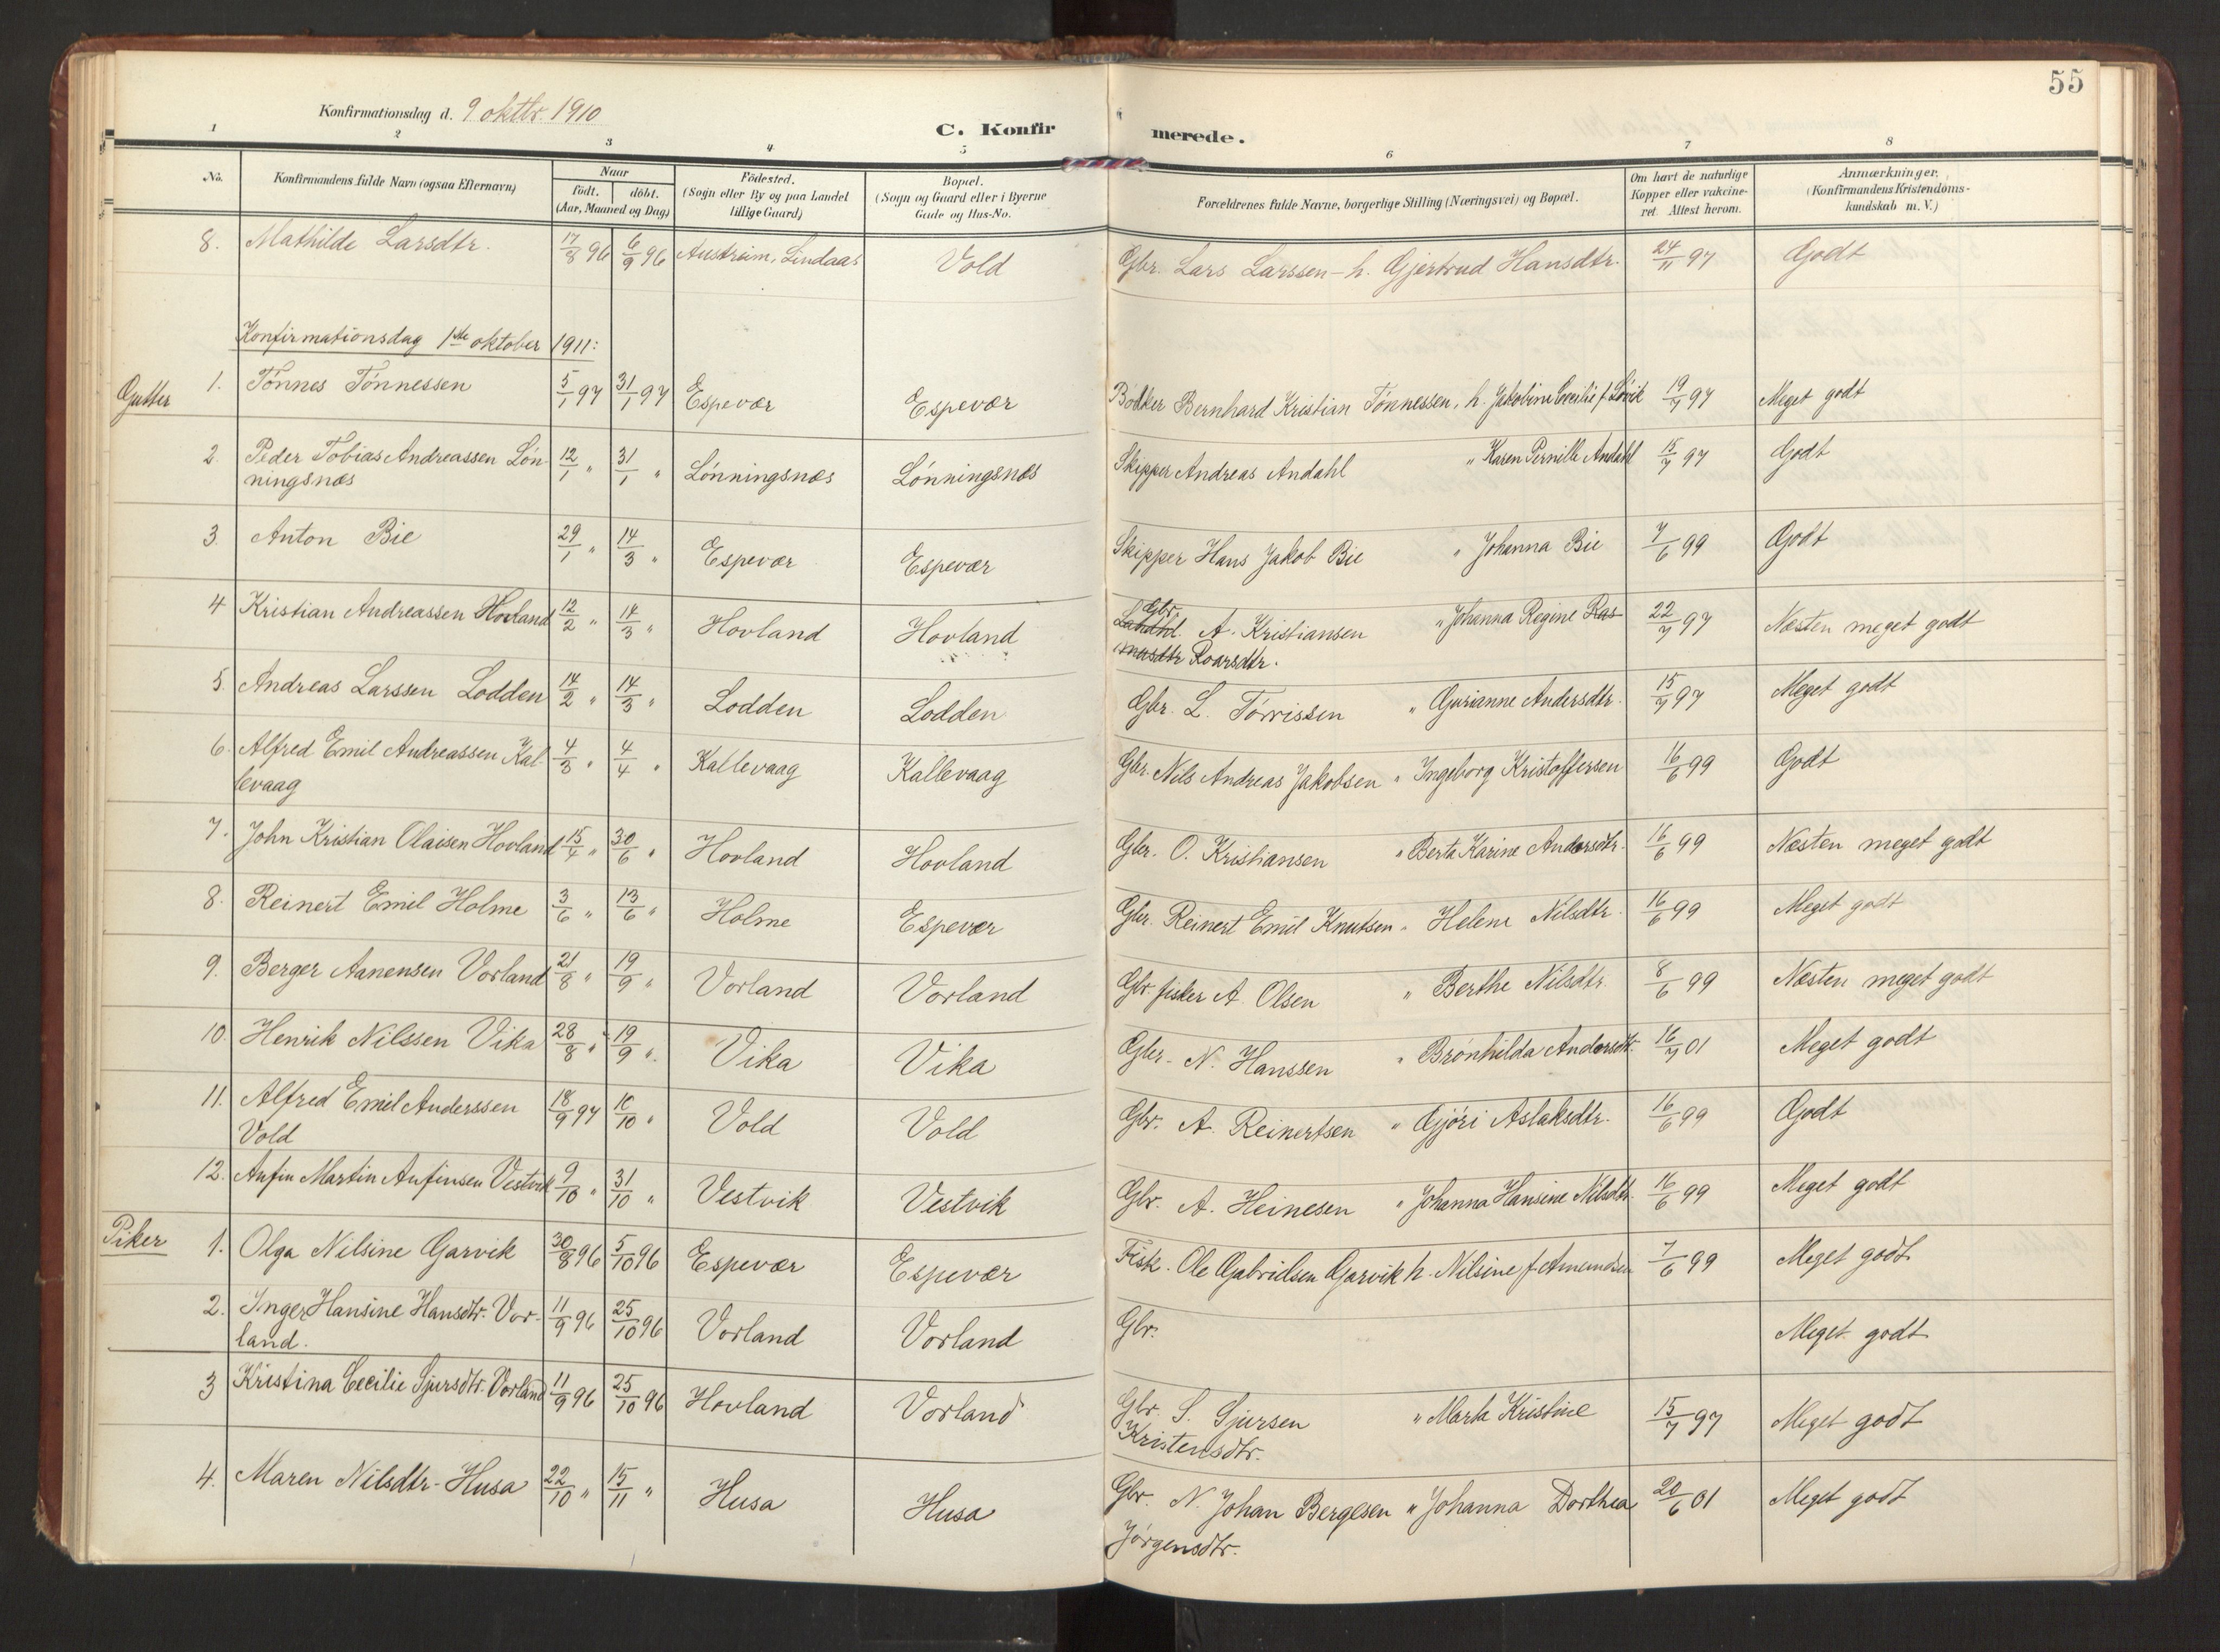 55
Konfirmationsdag d. 9 oktbr. 1910
C. Konfirmerede.
1 2 3 4 5 6 7 8
No. | Konfirmandens fulde Navn (ogsaa Efternavn) | Naar födt. döbt. (Aar, Maaned og Dag) | Födested. (Sogn eller By og paa Landet tillige Gaard) | Bopæl. (Sogn og Gaard eller i Byerne Gade og Hus-No. | Forældrenes fulde Navne, borgerlige Stilling (Næringsvei) og Bopæl. | Om havt de naturlige Kopper eller vakcineret. Attest herom. | Anmærkninger. (Konfirmandens Kristendomskundskab m. V.)
8. Mathilde Larsdtr. 17/8 96 6/9 96 Austreim, Lindaas Vold Gbr. Lars Larssen - h. Gjertrud Hansdtr. 24/11 97 Godt
Konfirmationsdag 1ste oktober 1911:
Gutter
1. Tönnes Tönnessen 5/1 97 31/1 97 Espevær Espevær Bödker Bernhard Kristian Tönnessen, h. Jakobine Cecilie f. Lövik 19/7 97 Meget godt
2. Peder Tobias Andreassen Lön- 12/1 " 31/1 " Lönningsnæs Lönningsnæs Skipper Andreas Andahl " Karen Pernille Andahl 15/7 97 Godt
ningsnæs
3. Anton Bie 29/1 " 14/3 " Espevær Espevær Skipper Hans Jakob Bie " Johanna Bie 7/6 99 Godt
4 Kristian Andreassen Hovland 12/2 " 14/3 " Hovland Hovland Gbr. A. Kristiansen " Johanna Regine Ras- 22/7 97 Næsten meget godt
musdtr Roarsdtr.
5. Andreas Larssen Lodden 14/2 " 14/3 " Lodden Lodden Gbr. L. Törrissen " Gurianne Andersdtr. 15/7 97 Meget godt
6. Alfred Emil Andreassen Kal- 4/3 " 4/4 " Kallevaag Kallevaag Gbr. Nils Andreas Jakobsen " Ingeborg Kristoffersen 16/6 99 Godt
levaag
7. John Kristian Olaisen Hovland 15/4 " 30/6 " Hovland Hovland Gbr. O. Kristiansen " Berta Karine Andersdtr. 16/6 99 Næsten meget godt
8. Reinert Emil Holme 3/6 " 13/6 " Holme Espevær Gbr. Reinert Emil Knutsen " Helene Nilsdtr. 16/6 99 Meget godt
9. Berger Aanensen Vorland 21/8 " 19/9 " Vorland Vorland Gbr. fisker A. Olsen " Berthe Nilsdtr. 8/6 99 Næsten meget godt
10. Henrik Nilssen Vika 28/8 " 19/9 " Vika Vika Gbr. N. Hanssen " Brönhilda Andersdtr. 16/7 01 Meget godt
11. Alfred Emil Anderssen 18/9 97 10/10 " Vold Vold Gbr. A. Reinertsen " Gjöri Aslaksdtr. 16/6 99 Godt
Vold
12. Anfin Martin Anfinsen Vestvik 9/10 " 31/10 " Vestvik Vestvik Gbr. A. Heinesen " Johanna Hansine Nilsdtr. 16/6 99 Meget godt
Piker
1. Olga Nilsine Garvik 30/8 96 5/10 96 Espevær Espevær Fisk. Ole Gabrielsen Garvik h. Nilsine f. Amundsen 7/6 99 Meget godt
2. Inger Hansine Hansdtr. Vor- 11/9 96 25/10 96 Vorland Vorland Gbr. Meget godt
land.
3 Kristina Cecilie Sjursdtr. Vorland 11/9 96 25/10 96 Hovland Vorland Gbr. S. Sjursen " Marta Kristine 15/7 97 Meget godt
Kristensdtr.
4. Maren Nilsdtr. Husa 22/10 " 15/11 " Husa Husa Gbr. N. Johan Bergesen " Johanna Dorthea 20/6 01 Meget godt
Jörgensdtr.